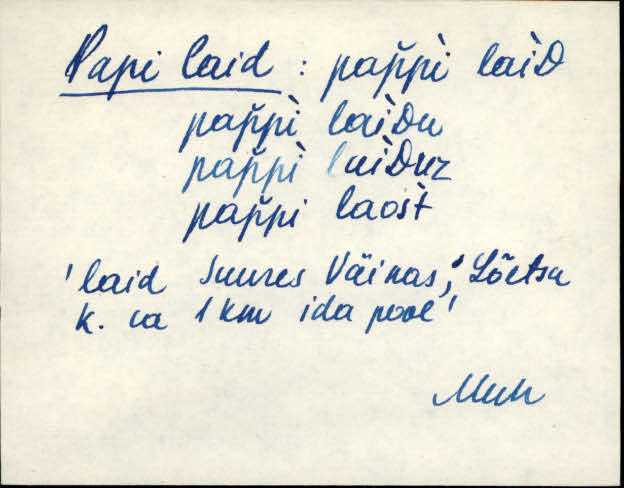 Papi laid : pap̆pì laìD
pap̆pì laìDu
pap̆pì laìDuz
pap̆pi laost̀
'laid Suures Väinas, Lõetsa
k. ca 1 km ida pool'
Muh